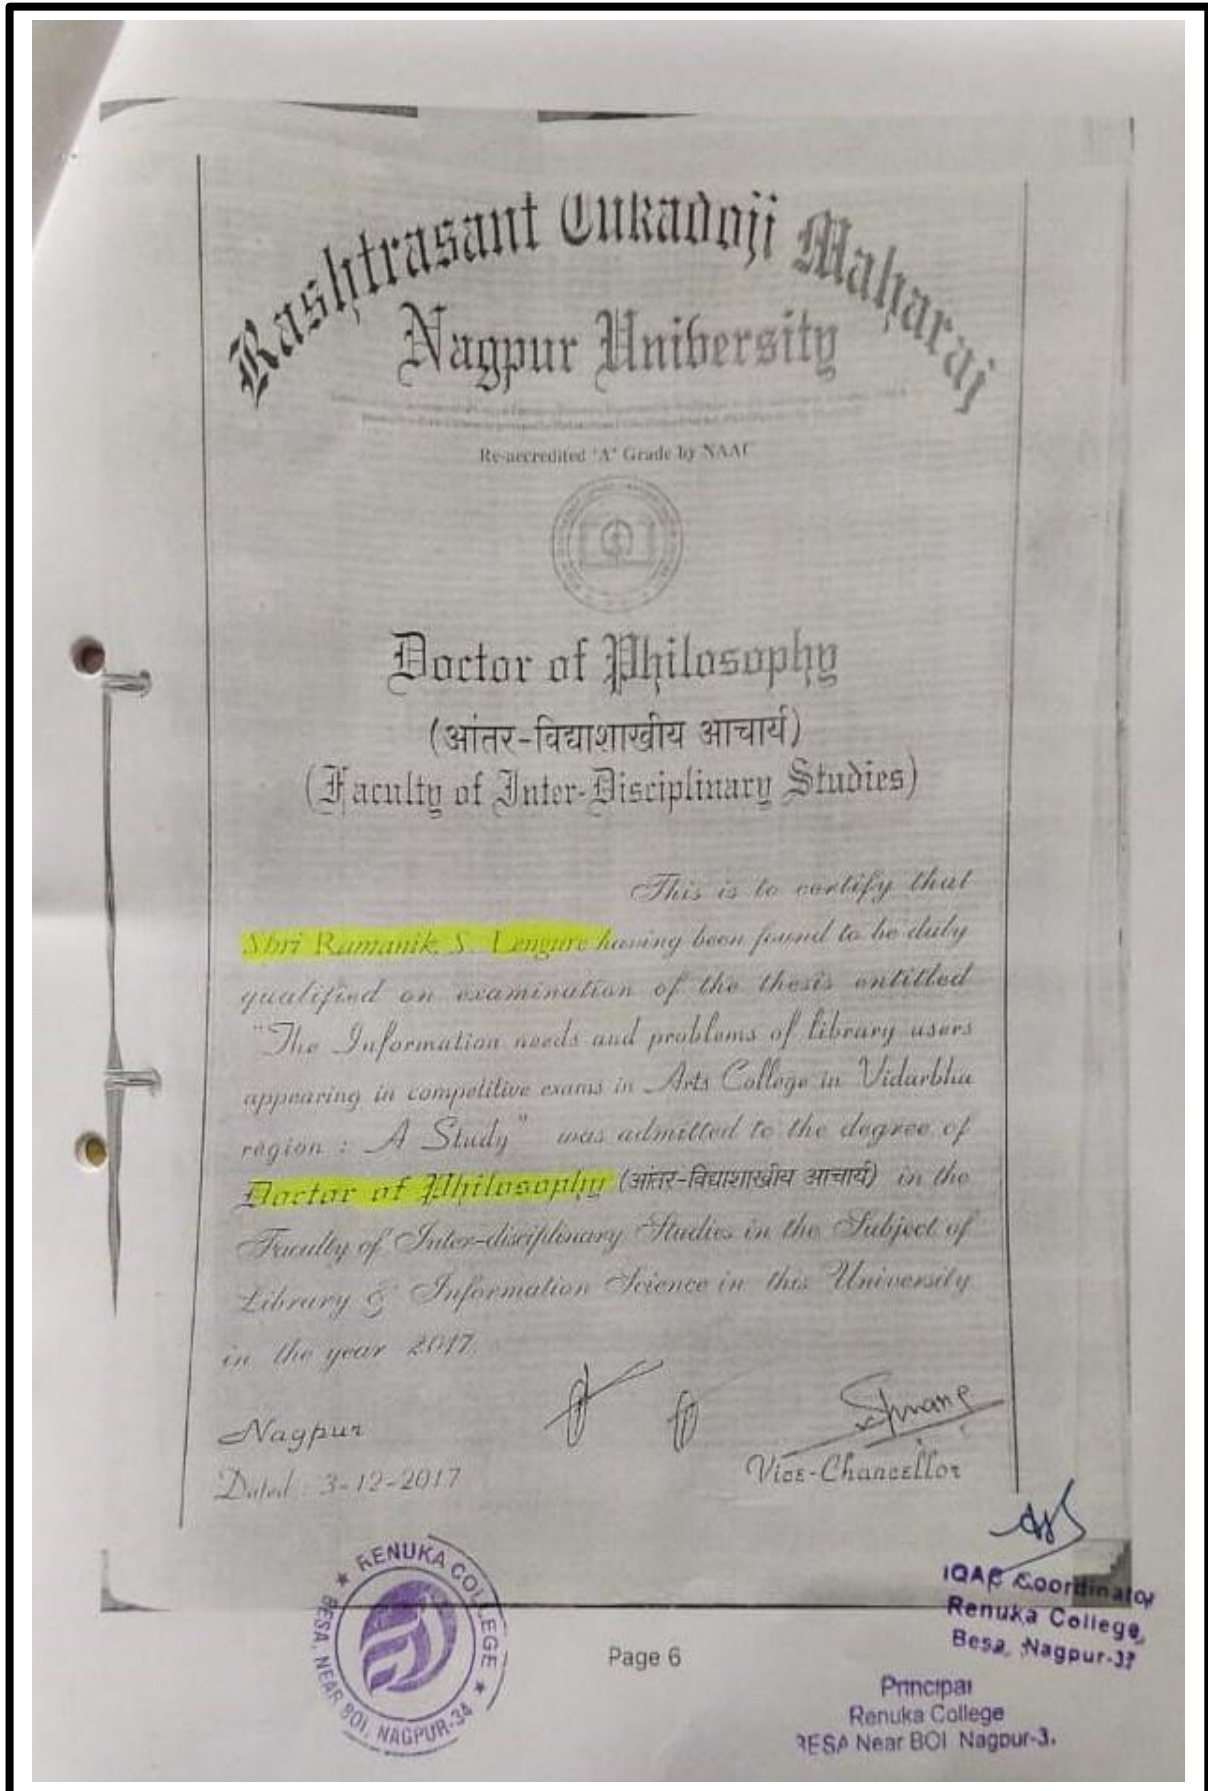 Rashtrasant Tukadoji Maharaj
Nagpur University
Re-accredited 'A' Grade by NAAC
Doctor of Philosophy
(आंतर-विद्याशाखीय आचार्य)
(Faculty of Inter-Disciplinary Studies)
This is to certify that
Shri Ramanik S. Lengure having been found to be duly
qualified on examination of the thesis entitled
"The Information needs and problems of library users
appearing in competitive exams in Arts College in Vidarbha
region : A Study" was admitted to the degree of
Doctor of Philosophy (आंतर-विद्याशाखीय आचार्य) in the
Faculty of Inter-disciplinary Studies in the Subject of
Library & Information Science in this University
in the year 2017.
Nagpur
Dated : 3-12-2017
Vice-Chancellor
RENUKA COLLEGE
BESA, NEAR BOI, NAGPUR-34
Page 6
IQAC Coordinator
Renuka College,
Besa, Nagpur-37
Principal
Renuka College
BESA Near BOI Nagpur-3.